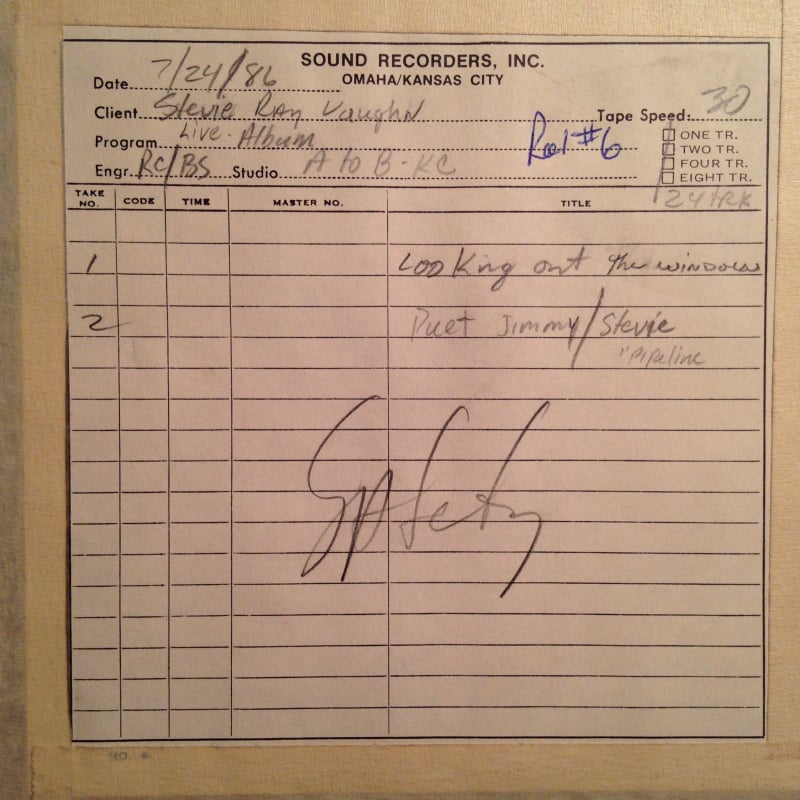 SOUND RECORDERS, INC.
OMAHA/KANSAS CITY
Date 7/24/86
Client Stevie Ray Vaughn
Tape Speed: 30
Program Live - Album
Reel #6
ONE TR.
TWO TR.
FOUR TR.
EIGHT TR.
24 TRK
Engr. RC/BS Studio A to B - KC
TAKE NO. CODE TIME MASTER NO. TITLE
1 Looking out the window
2 Duet Jimmy/Stevie
"Pipeline
Safety
NO.